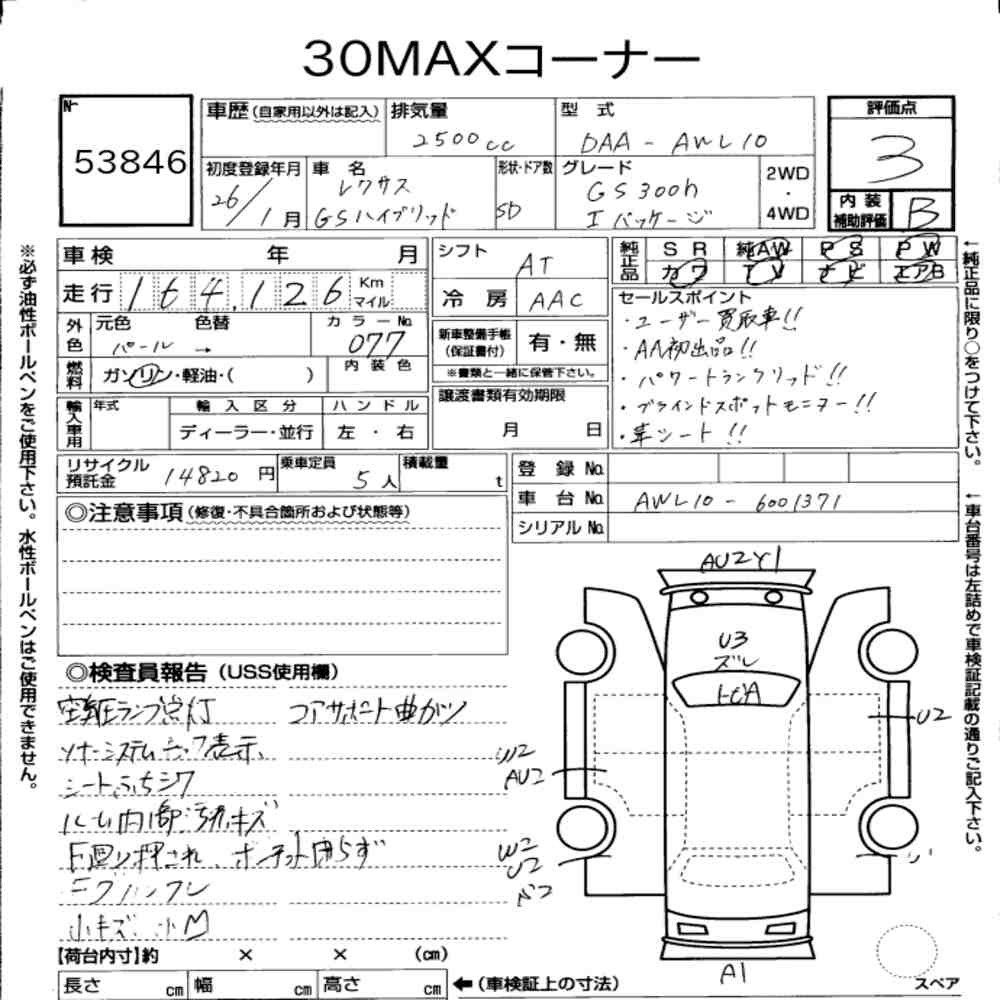 30MAXコーナー
No
53846
車歴(自家用以外は記入)
排気量
2500cc
型式
DAA-AWL10
評価点
3
初度登録年月
26/1月
車名
レクサス
GSハイブリッド
形状・ドア数
SD
グレード
GS300h
Iパッケージ
2WD
・
4WD
内装
補助評価
B
車検 年 月
シフト
AT
純正品
SR 純AW PS PW
カワ TV ナビ エアB
走行 164,126 Km マイル
冷房 AAC
セールスポイント
・ユーザー買取車!!
・AA初出品!!
・パワートランクリッド!!
・ブラインドスポットモニター!!
・革シート!!
外色
元色 色替
パール →
カラーNo.
077
新車整備手帳
(保証書付)
有・無
※書類と一緒に保管下さい。
燃料
ガソリン・軽油・( )
内装色
譲渡書類有効期限
月 日
輸入車用
年式
輸入区分
ハンドル
ディーラー・並行
左・右
リサイクル
預託金
14820円
乗車定員
5人
積載量
t
登録No.
車台No. AWL10-6001371
シリアルNo.
◎注意事項(修復・不具合箇所および状態等)
◎検査員報告(USS使用欄)
空気圧ランプ点灯 コアサポート曲がり
ソナーシステムチェック表示、
シートふちシワ
ルーム内側汚れキズ
F廻り押され、ボーナット回らず
小キズ、小M
AU2Y1
U3
ズレ
U2
W2
AU2
W2
U2
A1
スペア
【荷台内寸】約 × × (cm)
長さ cm 幅 cm 高さ cm
←(車検証上の寸法)
※必ず油性ボールペンをご使用下さい。水性ボールペンはご使用できません。
←純正品に限り○をつけて下さい。
←車台番号は左詰めで車検証記載の通りご記入下さい。